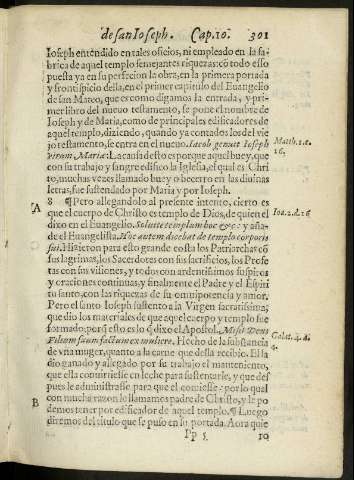 de san Ioseph. Cap. 10. 301
Ioseph entendido en tales oficios, ni empleado en la fa-
brica de aquel templo semejantes riquezas: cõ todo esso
puesta ya en su perfecion la obra, en la primera portada
y frontispicio della, en el primer capitulo del Euangelio
de san Mateo, que es como digamos la entrada, y pri-
mer libro del nueuo testamento, se pone el nombre de
Ioseph y de Maria, como de principales edificadores de
aquel templo, diziendo, quando ya contados los del vie
jo testamento, se entra en el nueuo. Iacob genuit Ioseph
virum, Mariæ: La causa desto es porque aquel buey, que
Matth. 1. c.
16.
con su trabajo y sangre edifico la Iglesia, el qual es Chri
sto, muchas vezes llamado buey o bezerro en las diuinas
letras, fue sustendado por Maria y por Ioseph.
A
8 ¶ Pero allegandolo al presente intento, cierto es
que el cuerpo de Christo es templo de Dios, de quien el
Ioa. 2. d. 16
dixo en el Euangelio. Soluite templum hoc &c: y aña-
de el Euangelista. Hoc autem dicebat de templo corporis
sui. Hizieron para esto grande costa los Patriarchas cõ
sus lagrimas, los Sacerdotes con sus sacrificios, los Profe
tas con sus visiones, y todos con ardentissimos suspiros
y oraciones continuas, y finalmente el Padre y el Espiri
tu santo, con las riquezas de su omnipotencia y amor.
Pero el santo Ioseph sustento a la Virgen sacratissima,
que dio los materiales de que aquel cuerpo y templo fue
formado: porq̃ esto es lo q̃ dixo el Apostol. Misit Deus
Filium suum factum ex muliere. Hecho de la substãcia
Galat. 4. a.
4.
de vna muger, quanto a la carne que della recibio. El la
dio ganado y allegado por su trabajo el mantenimiẽto,
que ella conuirtiesse en leche para sustentarle, y que des
pues le administrasse para que el comiesse: por lo qual
B
con mucha razon le llamamos padre de Christo, y le po
demos tener por edificador de aquel templo. ¶ Luego
diremos del titulo que se puso en su portada. Aora quie
Pp 5. ro